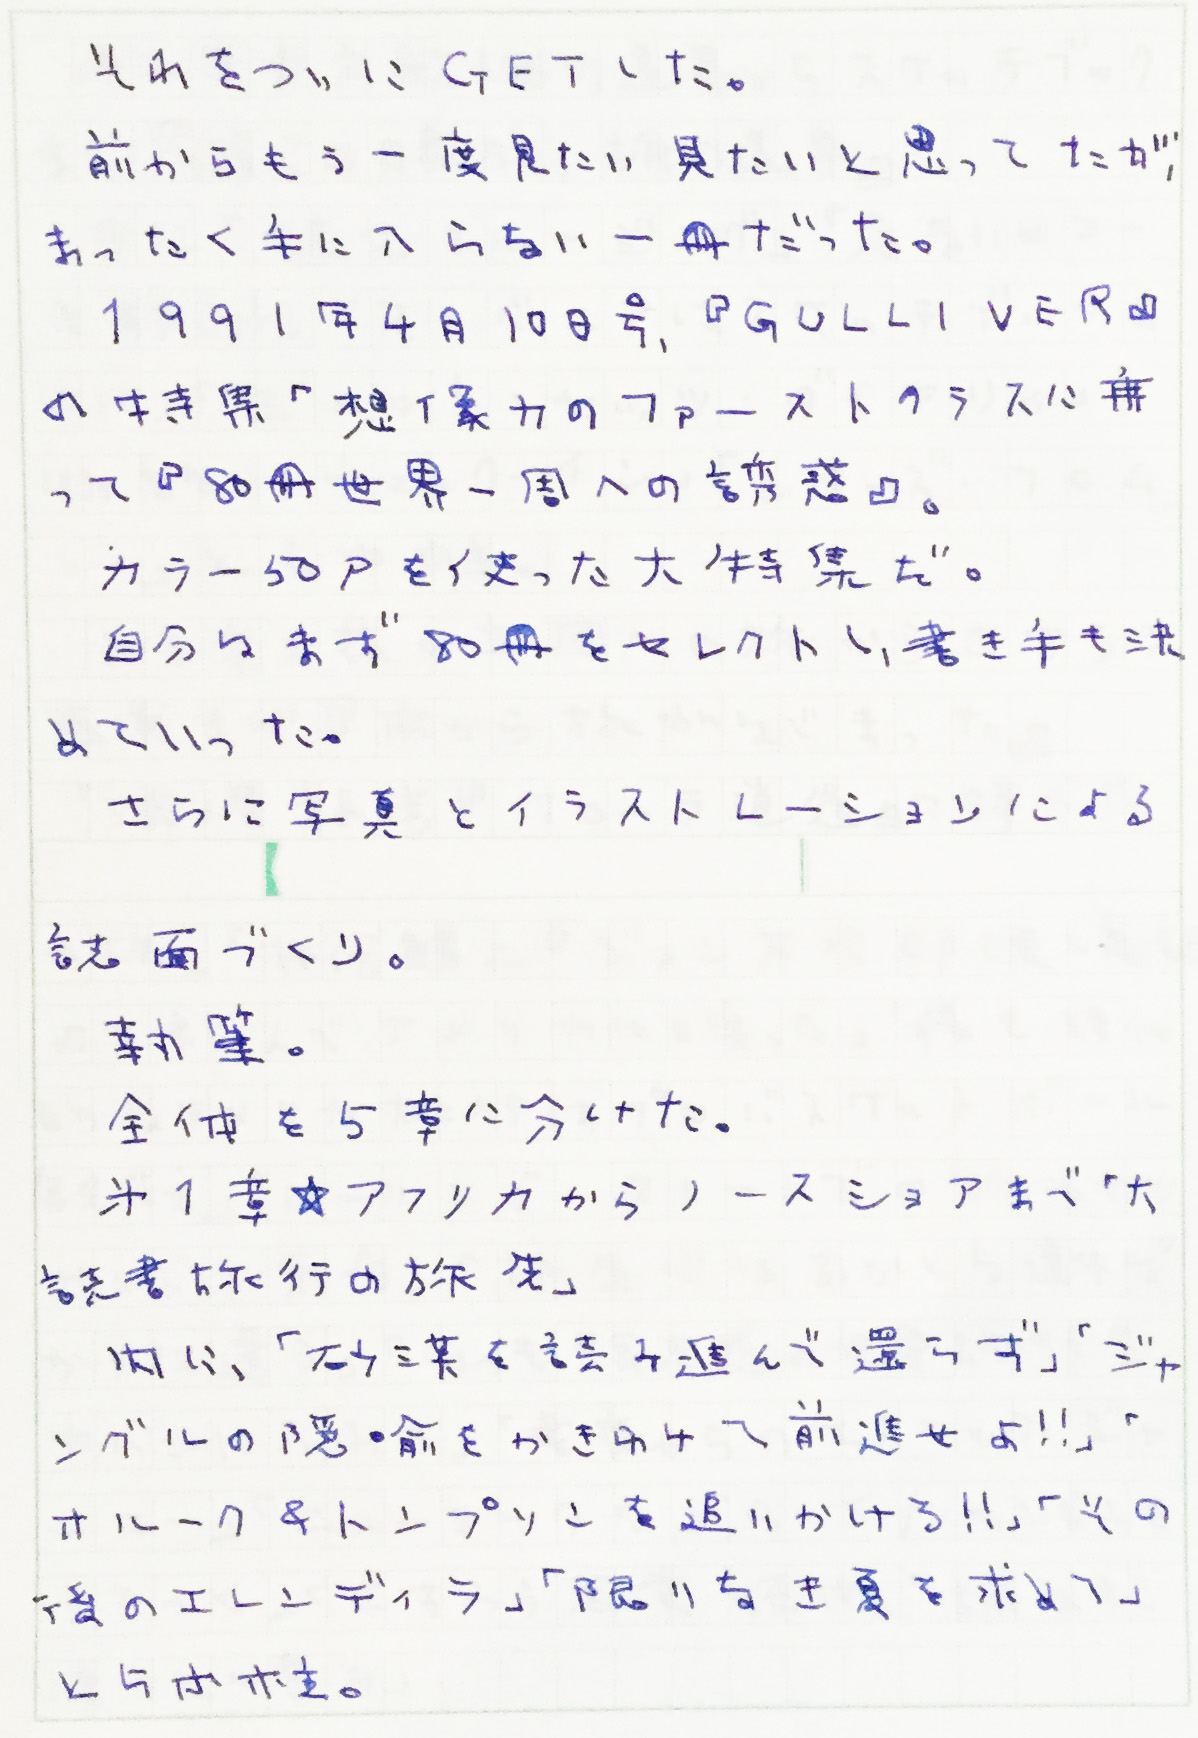 それをついにGETした。
前からもう一度見たい見たいと思ってたが、
まったく手に入らない一冊だった。
1991年4月10日号、『GULLIVER』
の特集「想像力のファーストクラスに乗
って『80冊世界一周への誘惑』。
カラー50Pを使った大特集だ。
自分はまず80冊をセレクトし、書き手も決
めていった。
さらに写真とイラストレーションによる
誌面づくり。
執筆。
全体を5章に分けた。
第1章☆アフリカからノースショアまで「大
読書旅行の旅先」
内に、「砂漠を読み進んで還らず」「ジャ
ングルの隠喩をかきわけて前進せよ!!」「
オルーク&トンプソンを追いかける!!」「その
後のエレンディラ」「限りなき夏を求めて」
と5本柱。